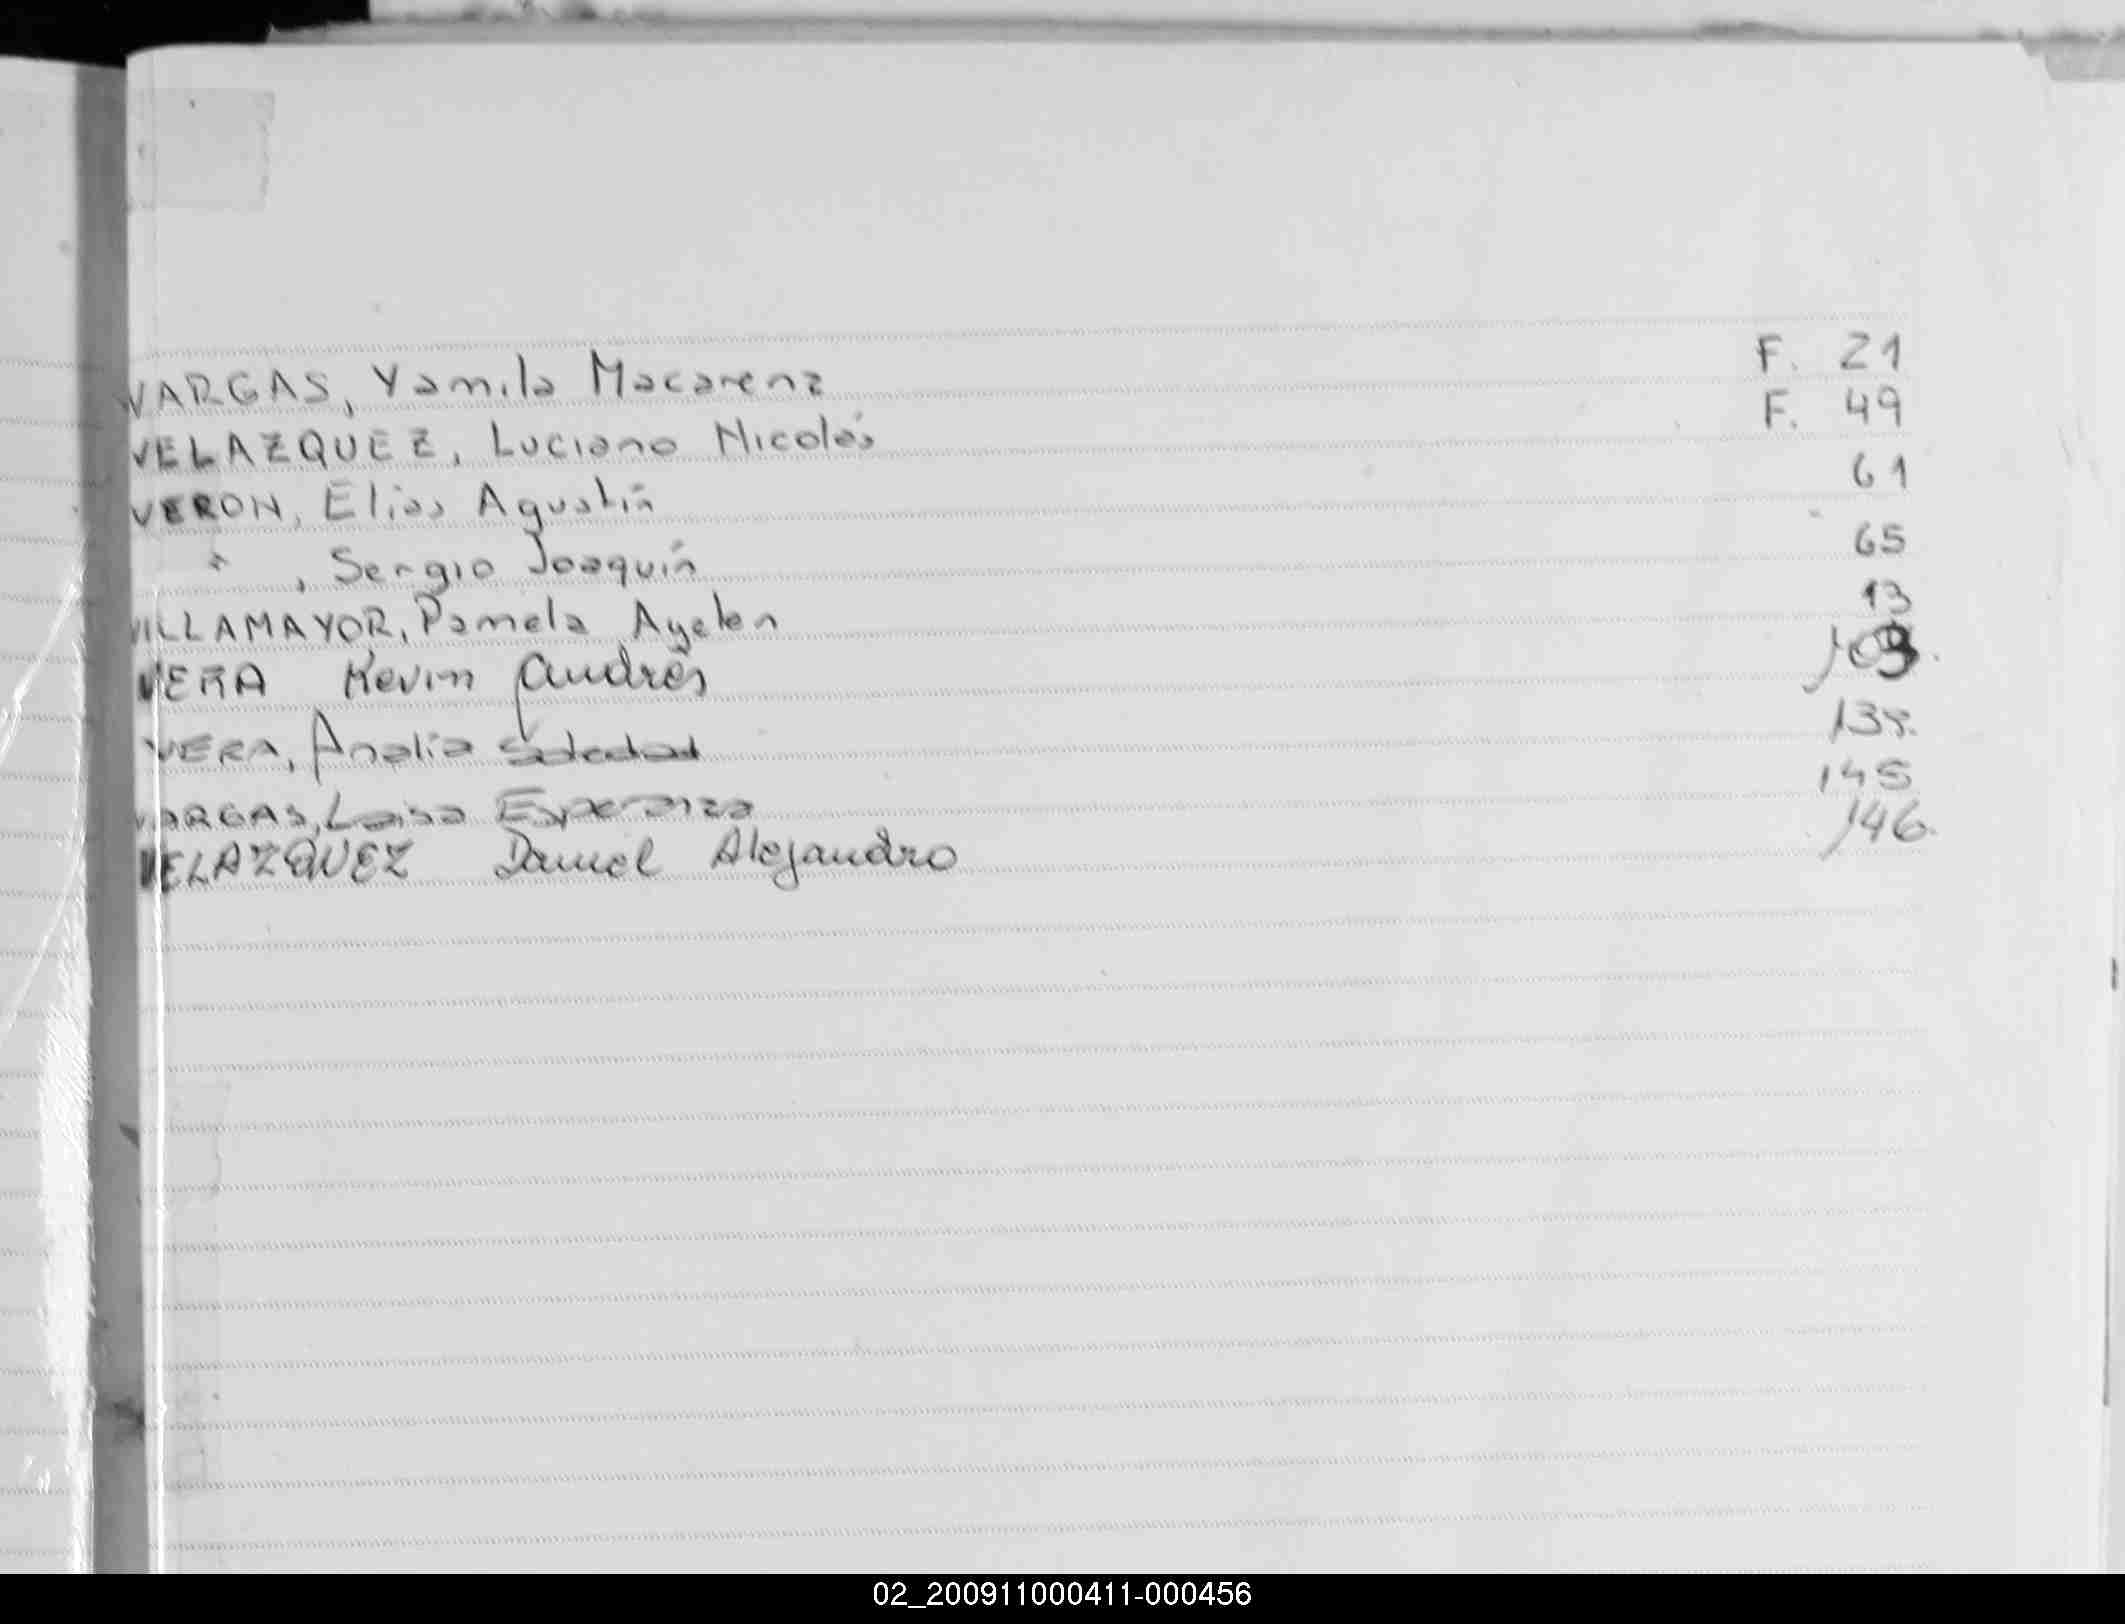 VARGAS, Yamila Macarena F. 21
VELAZQUEZ, Luciano Nicolás F. 49
VERON, Elias Agustín 61
" , Sergio Joaquín 65
VILLAMAYOR, Pamela Ayelen 13
VERA Kevin Andrés 103.
VERA, Analia Soledad 138.
VARGAS, Luisa Esperanza 145
VELAZQUEZ Daniel Alejandro 146.
02_200911000411-000456